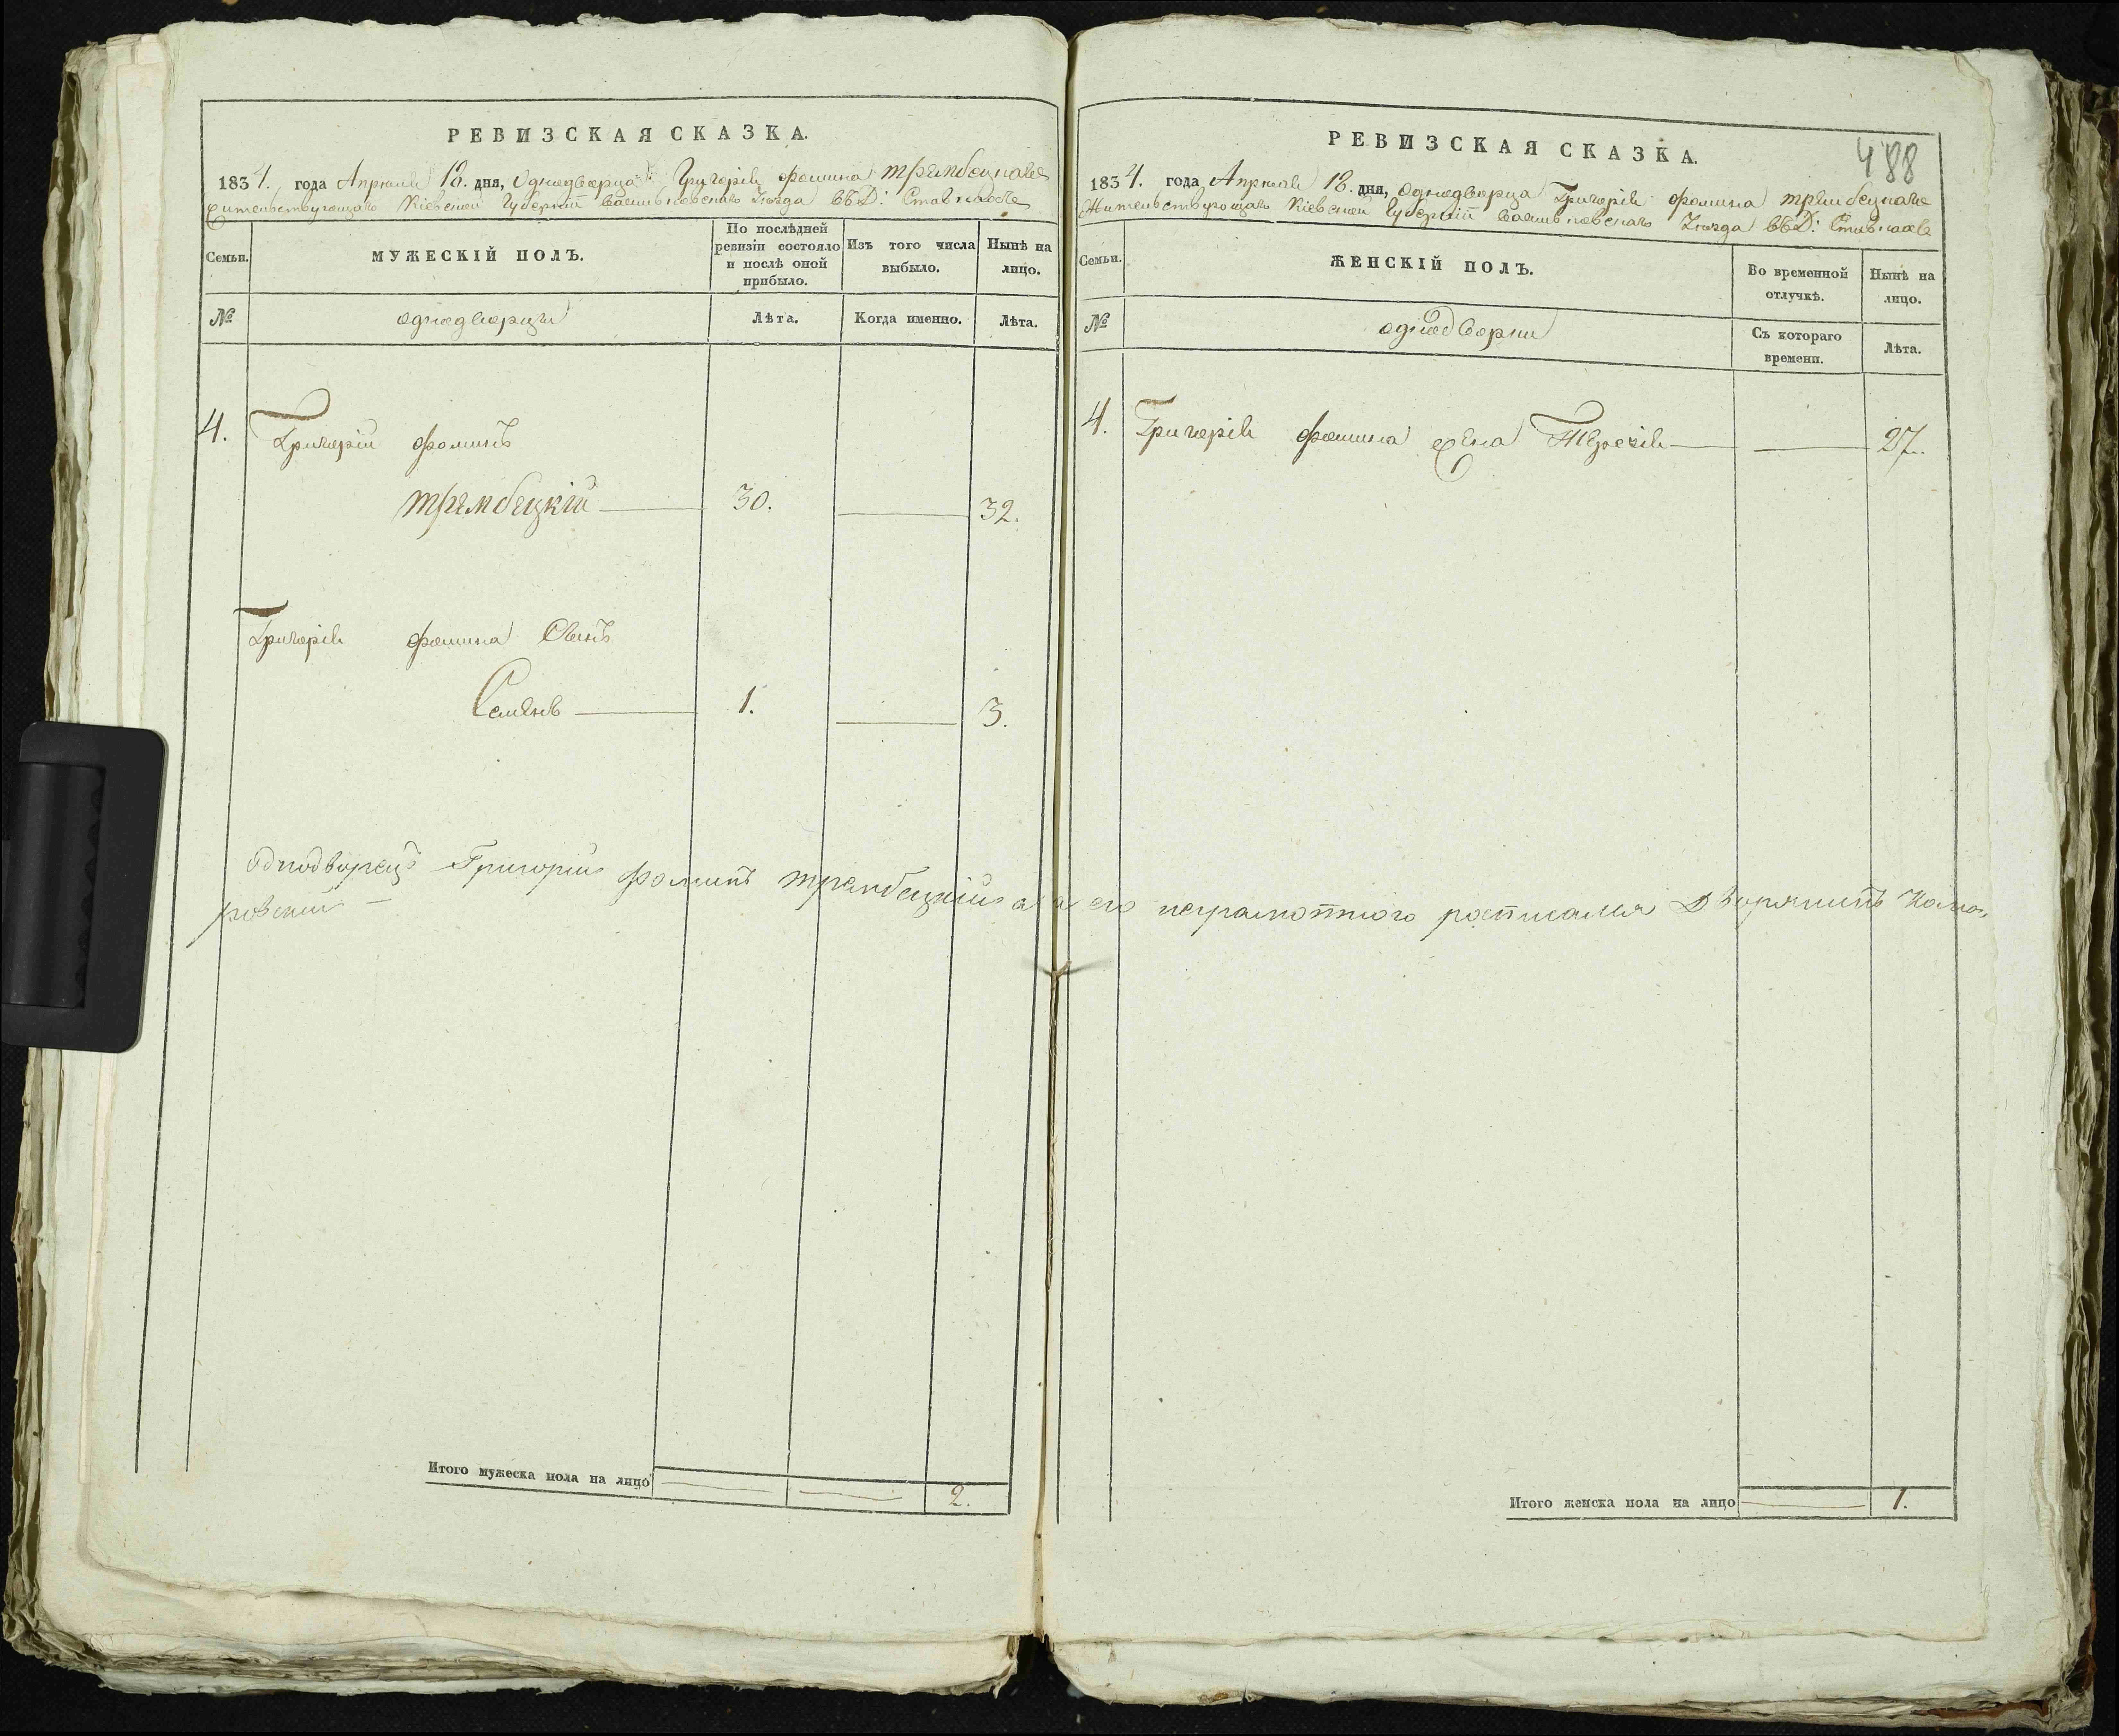 РЕВИЗСКАЯ СКАЗКА.
1834. года Апреля 18. дня, Однодворца Григорія Фомина Трембецкаго
Жительствующаго Кіевской Губерніи Васильковскаго Уезда въ Д:
Семьи.
МУЖЕСКІЙ ПОЛЪ.
По послѣдней ревизіи состояло и послѣ оной прибыло.
Изъ того числа выбыло.
Нынѣ на лицо.
№
однодворцы
Лѣта.
Когда именно.
Лѣта.
4.
Григорій Фоминъ
Трембецкій 30. 32.
Григорія Фомина Сынъ
Семенъ 1. 3.
однодворецъ Григорій Фоминъ Трембецкій а за его неграмотного росписался Дворянинъ
Итого мужеска пола на лицо 2.
488
РЕВИЗСКАЯ СКАЗКА.
1834. года Апреля 18. дня, Однодворца Григорія Фомина Трембецкаго
Жительствующаго Кіевской Губерніи Васильковскаго Уезда въ Д:
Семьи.
ЖЕНСКІЙ ПОЛЪ.
Во временной отлучкѣ.
Нынѣ на лицо.
№
Съ котораго времени.
Лѣта.
4. Григорія Фомина жена 27.
Итого женска пола на лицо 1.